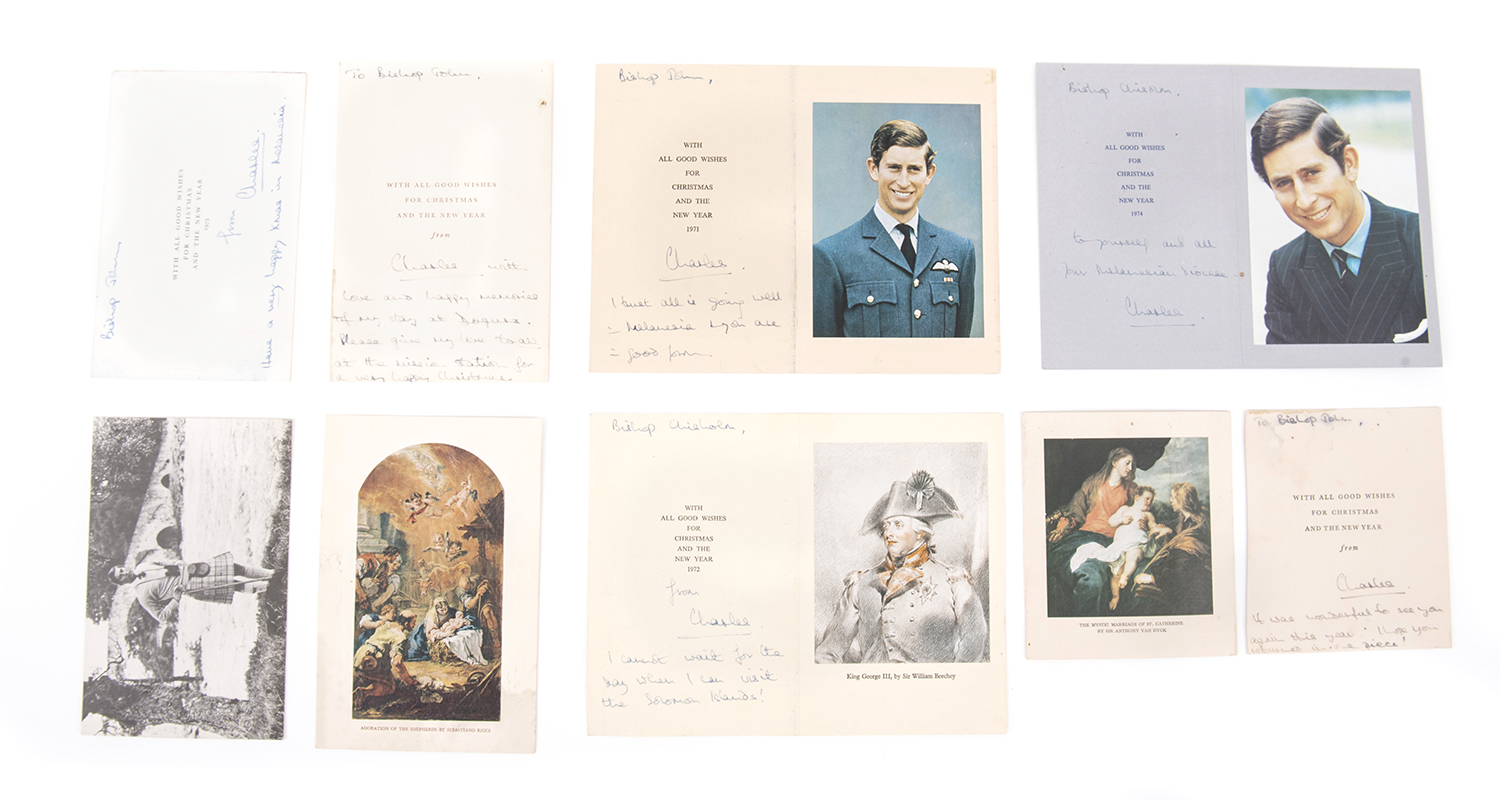 Bishop John
WITH ALL GOOD WISHES
FOR CHRISTMAS
AND THE NEW YEAR
from Charles
Have a very happy Xmas in Melanesia.
To Bishop John,
WITH ALL GOOD WISHES
FOR CHRISTMAS
AND THE NEW YEAR
from
Charles with
love and happy memories
of my stay at Dogura.
Please give my love to all
at the mission station for
a very happy Christmas.
Bishop John,
WITH
ALL GOOD WISHES
FOR
CHRISTMAS
AND THE
NEW YEAR
1971
Charles
I trust all is going well
in Melanesia & you are
in good form.
Bishop Chisholm,
WITH
ALL GOOD WISHES
FOR
CHRISTMAS
AND THE
NEW YEAR
1974
to yourself and all
your Melanesian Diocese
Charles
ADORATION OF THE SHEPHERDS BY SEBASTIANO RICCI
Bishop Chisholm,
WITH
ALL GOOD WISHES
FOR
CHRISTMAS
AND THE
NEW YEAR
1972
from
Charles
I cannot wait for the
day when I can visit
the Solomon Islands!
King George III, by Sir William Beechey
THE MYSTIC MARRIAGE OF ST. CATHERINE
BY SIR ANTHONY VAN DYCK
To Bishop John,
WITH ALL GOOD WISHES
FOR CHRISTMAS
AND THE NEW YEAR
from
Charles.
It was wonderful to see you
again this year. I hope you
returned in one piece!